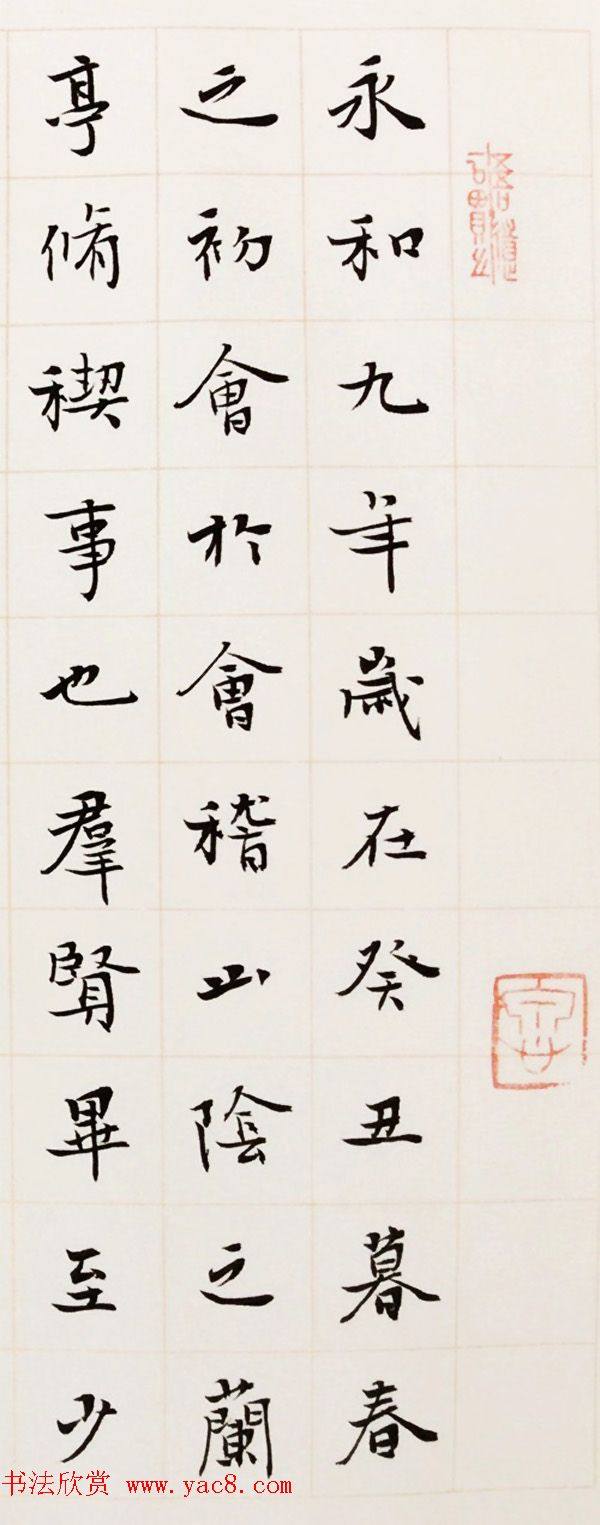 永和九年歲在癸丑暮春
之初會於會稽山陰之蘭
亭脩稧事也羣賢畢至少
书法欣赏 www.yac8.com